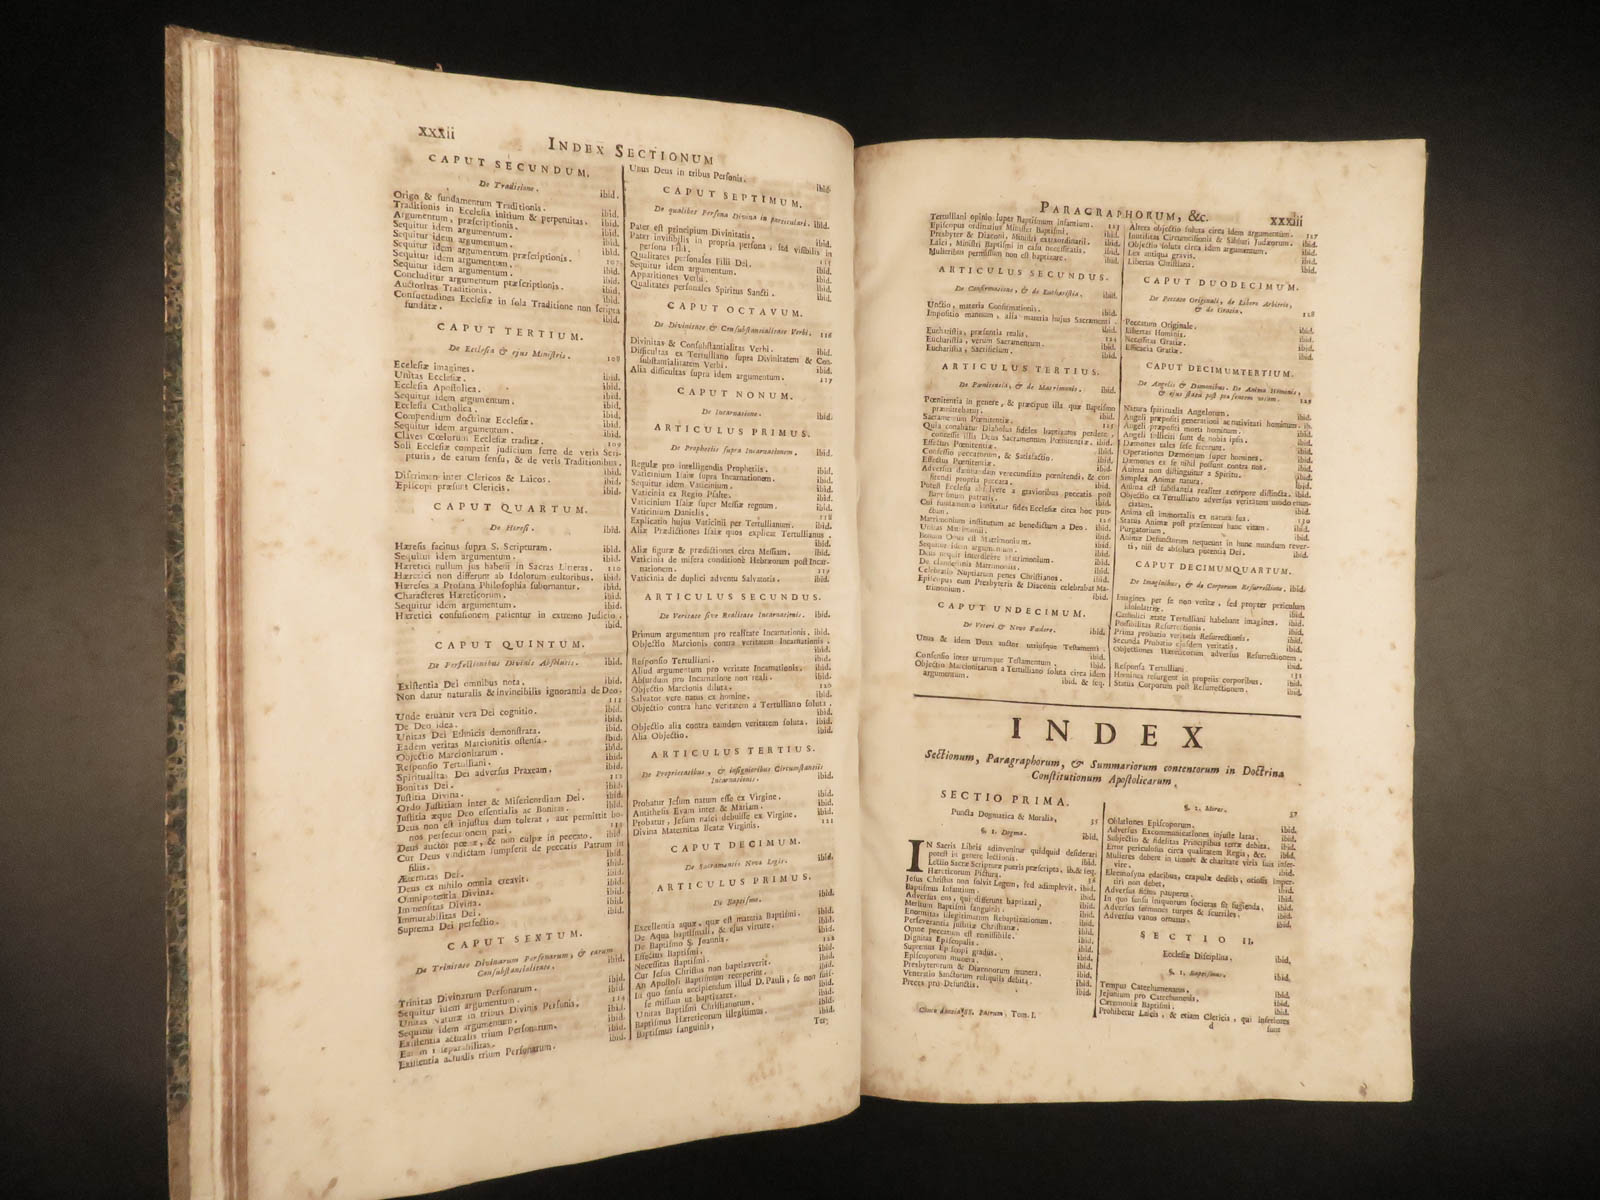 xxxii
INDEX SECTIONUM
CAPUT SECUNDUM.
De Traditione. ibid.
Origo & fundamentum Traditionis.
Traditionis in Ecclesia initium & perpetuitas. ibid.
Argumentum, præscriptionis. ibid.
Sequitur idem argumentum. ibid.
Sequitur idem argumentum. ibid.
Sequitur idem argumentum præscriptionis. ibid.
Sequitur idem argumentum. 107
Sequitur idem argumentum. ibid.
Concluditur argumentum præscriptionis. ibid.
Auctoritas Traditionis. ibid.
Consuetudines Ecclesiæ in sola Traditione non scripta
fundatæ. ibid.
CAPUT TERTIUM.
De Ecclesia & ejus Ministris. 108
Ecclesiæ imagines.
Unitas Ecclesiæ. ibid.
Ecclesia Apostolica. ibid.
Sequitur idem argumentum. ibid.
Ecclesia Catholica. ibid.
Compendium doctrinæ Ecclesiæ. ibid.
Sequitur idem argumentum. ibid.
Claves Cœlorum Ecclesiæ traditæ. 109
Soli Ecclesiæ competit judicium ferre de veris Scri-
pturis, de earum sensu, & de veris Traditionibus.
ibid.
Discrimen inter Clericos & Laicos. ibid.
Episcopi præsunt Clericis. ibid.
CAPUT QUARTUM.
De Heresi. ibid.
Hæresis facinus supra S. Scripturam. ibid.
Sequitur idem argumentum. ibid.
Hæretici nullum jus habent in Sacras Litteras. 110
Hæretici non differunt ab Idolorum cultoribus. ibid.
Hæreses a Profana Philosophia subornantur. ibid.
Characteres Hæreticorum. ibid.
Sequitur idem argumentum. ibid.
Hæretici confusionem patientur in extremo Judicio.
ibid.
CAPUT QUINTUM.
De Perfectionibus Divinis Absolutis. ibid.
Existentia Dei omnibus nota. ibid.
Non datur naturalis & invincibilis ignorantia de Deo.
111
Unde eruatur vera Dei cognitio. ibid.
De Deo idea. ibid.
Unitas Dei Ethnicis demonstrata. ibid.
Eadem veritas Marcionitis ostensa. ibid.
Objectio Marcionitarum. ibid.
Responsio Tertulliani. ibid.
Spiritualitas Dei adversus Praxeam. 112
Bonitas Dei. ibid.
Justitia Divina. ibid.
Ordo Justitiam inter & Misericordiam Dei. ibid.
Justitia æque Deo essentialis ac Bonitas. ibid.
Deus non est injustus dum tolerat, aut permittit bo-
nos persecutionem pati. 113
Deus auctor pœnæ, & non culpæ in peccato. ibid.
Cur Deus vindictam sumpserit de peccatis Patrum in
filiis. ibid.
Æternitas Dei. ibid.
Deus ex nihilo omnia creavit. ibid.
Omnipotentia Divina. ibid.
Immensitas Divina. ibid.
Immutabilitas Dei. ibid.
Suprema Dei perfectio. ibid.
CAPUT SEXTUM.
De Trinitate Divinarum Personarum, & earum
Consubstantialitate. ibid.
Trinitas Divinarum Personarum. ibid.
Sequitur idem argumentum. 114
Unitas Naturæ in tribus Divinis Personis. ibid.
Sequitur idem argumentum. ibid.
Existentia actualis trium Personarum. ibid.
Existentia actualis trium Personarum. ibid.
Unus Deus in tribus Personis. ibid.
CAPUT SEPTIMUM.
De qualibet Persona Divina in particulari. ibid.
Pater est principium Divinitatis. ibid.
Pater invisibilis in propria persona, sed visibilis in
persona Filii. 115
Qualitates personales Filii Dei. ibid.
Sequitur idem argumentum. ibid.
Apparitiones Verbi. ibid.
Qualitates personales Spiritus Sancti. ibid.
CAPUT OCTAVUM.
De Divinitate & Consubstantialitate Verbi. 116
Divinitas & Consubstantialitas Verbi. ibid.
Difficultas ex Tertulliano supra Divinitatem & Con-
substantialitatem Verbi. ibid.
Alia difficultas supra idem argumentum. 117
CAPUT NONUM.
De Incarnatione. ibid.
ARTICULUS PRIMUS.
De Prophetiis supra Incarnationem. ibid.
Regulæ pro intelligendis Prophetiis. ibid.
Vaticinium Isaiæ supra Incarnationem. ibid.
Sequitur idem Vaticinium. ibid.
Vaticinia ex Regio Psalte. ibid.
Vaticinium Isaiæ super Messiæ regnum. ibid.
Vaticinium Danielis. 118
Explicatio hujus Vaticinii per Tertullianum. ibid.
Aliæ Prædictiones Isaiæ quos explicat Tertullianus.
ibid.
Aliæ figuræ & prædictiones circa Messiam. ibid.
Vaticinia de misera conditione Hebræorum post Incar-
nationem. 119
Vaticinia de duplici adventu Salvatoris. ibid.
ARTICULUS SECUNDUS.
De Veritate sive Realitate Incarnationis. ibid.
Primum argumentum pro realitate Incarnationis. ibid.
Objectio Marcionis contra veritatem Incarnationis.
ibid.
Responsio Tertulliani. ibid.
Aliud argumentum pro veritate Incarnationis. ibid.
Absurdum pro Incarnatione non reali. ibid.
Objectio Marcionis diluta. 120
Salvator vere natus ex homine. ibid.
Objectio contra hanc veritatem a Tertulliano soluta.
ibid.
Objectio alia contra eamdem veritatem soluta. ibid.
Alia Objectio. ibid.
ARTICULUS TERTIUS.
De Proprietatibus, & insignioribus Circumstantiis
Incarnationis. ibid.
Probatur Jesum natum esse ex Virgine. ibid.
Antithesis Evam inter & Mariam. ibid.
Probatur, Jesum nasci debuisse ex Virgine. ibid.
Divina Maternitas Beatæ Virginis. 121
CAPUT DECIMUM.
De Sacramentis Novæ Legis. ibid.
ARTICULUS PRIMUS.
De Baptismo. ibid.
Excellentia aquæ, quæ est materia Baptismi. ibid.
De Aqua baptismali, & ejus virtute. ibid.
De Baptismo S. Joannis. ibid.
Effectus Baptismi. 122
Necessitas Baptismi. ibid.
Cur Jesus Christus non baptizaverit. ibid.
An Apostoli Baptismum receperint. ibid.
In quo sensu accipiendum illud D. Pauli, se non fuis-
se missum ut baptizaret. ibid.
Unitas Baptismi Christianorum. ibid.
Baptismus Hæreticorum illegitimus. ibid.
Baptismus sanguinis. ibid.
Ter-
PARAGRAPHORUM, &c.
xxxiii
Tertulliani opinio super Baptismum infantium. 123
Episcopus ordinarius Minister Baptismi. ibid.
Presbyter & Diaconi, Ministri extraordinarii. ibid.
Laici, Ministri Baptismi in casu necessitatis. ibid.
Mulieribus permissum non est baptizare. ibid.
ARTICULUS SECUNDUS.
De Confirmatione, & de Eucharistia. ibid.
Unctio, materia Confirmationis. ibid.
Impositio manuum, alia materia hujus Sacramenti.
ibid.
Eucharistia, præsentia realis. 124
Eucharistia, verum Sacramentum. ibid.
Eucharistia, Sacrificium. ibid.
ARTICULUS TERTIUS.
De Pœnitentia, & de Matrimonio. ibid.
Pœnitentia in genere, & præcipue illa quæ Baptismo
præmittebatur. ibid.
Sacramentum Pœnitentiæ. 125
Quia conabatur Diabolus fideles baptizatos perdere,
concessit illis Deus Sacramentum Pœnitentiæ. ibid.
Effectus Pœnitentiæ. ibid.
Confessio peccatorum, & Satisfactio. ibid.
Effectus Pœnitentiæ. ibid.
Adversus damnandam verecundiam pœnitendi, & con-
fitendi propria peccata. ibid.
Potest Ecclesia absolvere a gravioribus peccatis post
Baptismum patratis. ibid.
Cui fundamento innitatur fides Ecclesiæ circa hoc pun-
ctum. 126
Matrimonium institutum ac benedictum a Deo. ibid.
Unitas Matrimonii. ibid.
Bonum Opus est Matrimonium. ibid.
Sequitur idem argumentum. ibid.
Deus nequit interdicere Matrimonium. ibid.
De clandestinis Matrimoniis. ibid.
Celebratio Nuptiarum penes Christianos. ibid.
Episcopus cum Presbyteris & Diaconis celebrabat Ma-
trimonium. ibid.
CAPUT UNDECIMUM.
De Veteri & Novo Fœdere. ibid.
Unus & idem Deus auctor utriusque Testamenti.
ibid.
Consensio inter utrumque Testamentum. ibid.
Objectio Marcionitarum a Tertulliano soluta circa idem
argumentum. ibid. & seq.
Altera objectio soluta circa idem argumentum. 127
Inutilitas Circumcisionis & Sabbati Judæorum. ibid.
Objectio soluta circa idem argumentum. ibid.
Lex antiqua gravis. ibid.
Libertas Christiana. ibid.
CAPUT DUODECIMUM.
De Peccato Originali, de Libero Arbitrio,
& de Gratia. 128
Peccatum Originale. ibid.
Libertas Hominis. ibid.
Necessitas Gratiæ. ibid.
Efficacia Gratiæ. ibid.
CAPUT DECIMUMTERTIUM.
De Angelis & Dæmonibus. De Anima Hominis,
& ejus statu post præsentem vitam. 129
Natura spiritualis Angelorum. ibid.
Angeli præpositi generationi ac nativitati hominum. ib.
Angeli præpositi morti hominum. ibid.
Angeli infelices sunt de nobis ipsis. ibid.
Dæmones tales sese fecerunt. ibid.
Operationes Dæmonum super homines. ibid.
Dæmones ex se nihil possunt contra nos. ibid.
Anima non distinguitur a Spiritu. ibid.
Simplex Animæ natura. ibid.
Anima est substantia realiter a corpore distincta. ibid.
Objectio ex Tertulliano adversus veritatem modo enun-
ciatam. ibid.
Anima est immortalis ex natura sua. 130
Status Animæ post præsentem hanc vitam. ibid.
Purgatorium. ibid.
Animæ Defunctorum nequeunt in hunc mundum rever-
ti, nisi de absoluta potentia Dei. ibid.
CAPUT DECIMUMQUARTUM.
De Imaginibus, & de Corporum Resurrectione. ibid.
Imagines per se non veritæ, sed propter periculum
idololatriæ. ibid.
Catholici ætate Tertulliani habebant imagines. ibid.
Possibilitas Resurrectionis. ibid.
Prima probatio veritatis Resurrectionis. ibid.
Secunda Probatio ejusdem veritatis. ibid.
Objectiones Hæreticorum adversus Resurrectionem.
ibid.
Responsa Tertulliani. 131
Homines resurgent in propriis corporibus. ibid.
Status Corporum post Resurrectionem. ibid.
INDEX
Sectionum, Paragraphorum, & Summariorum contentorum in Doctrina
Constitutionum Apostolicarum.
SECTIO PRIMA.
Puncta Dogmatica & Moralia, 35
§. 1. Dogma. ibid.
IN Sacris Libris adinvenitur quidquid desiderari
potest in genere lectionis. ibid.
Lectio Sacræ Scripturæ pueris præscripta. ib.& seq.
Hæreticorum Pictura. 36
Jesus Christus non solvit Legem, sed adimplevit. ibid.
Baptismus Infantium. ibid.
Adversus eos, qui differunt baptizari. ibid.
Meritum Baptismi sanguinis. ibid.
Enormitas illegitimarum Rebaptizationum. ibid.
Perseverantia justitiæ Christianæ. ibid.
Omne peccatum est remissibile. ibid.
Dignitas Episcopalis. ibid.
Supremus Episcopi gradus. ibid.
Episcoporum munera. ibid.
Presbyterorum & Diaconorum munera. ibid.
Veneratio Sanctorum reliquiis debita. ibid.
Preces pro Defunctis. ibid.
SS. Patrum, Tom. I.
§. 2. Mores. 37
Oblationes Episcoporum. ibid.
Adversus Excommunicationes injuste latas. ibid.
Subjectio & fidelitas Principibus terræ debita. ibid.
Error periculosus circa qualitatem Regis, &c. ibid.
Mulieres debere in timore & charitate viris suis inser-
vire. ibid.
Eleemosyna edacibus, crapulæ deditis, otiosis imper-
tiri non debet. ibid.
Adversus fictos pauperes. ibid.
In quo sensu iniquorum societas sit fugienda. ibid.
Adversus sermones turpes & scurriles. ibid.
Adversus vanos ornatus. ibid.
SECTIO II.
Ecclesiæ Disciplina. ibid.
§. 1. Baptismus. ibid.
Tempus Catechumenatus. ibid.
Jejunium pro Catechumenis. ibid.
Cæremoniæ Baptismi. ibid.
Prohibetur Laicis, & etiam Clericis, qui inferiores
d
sunt